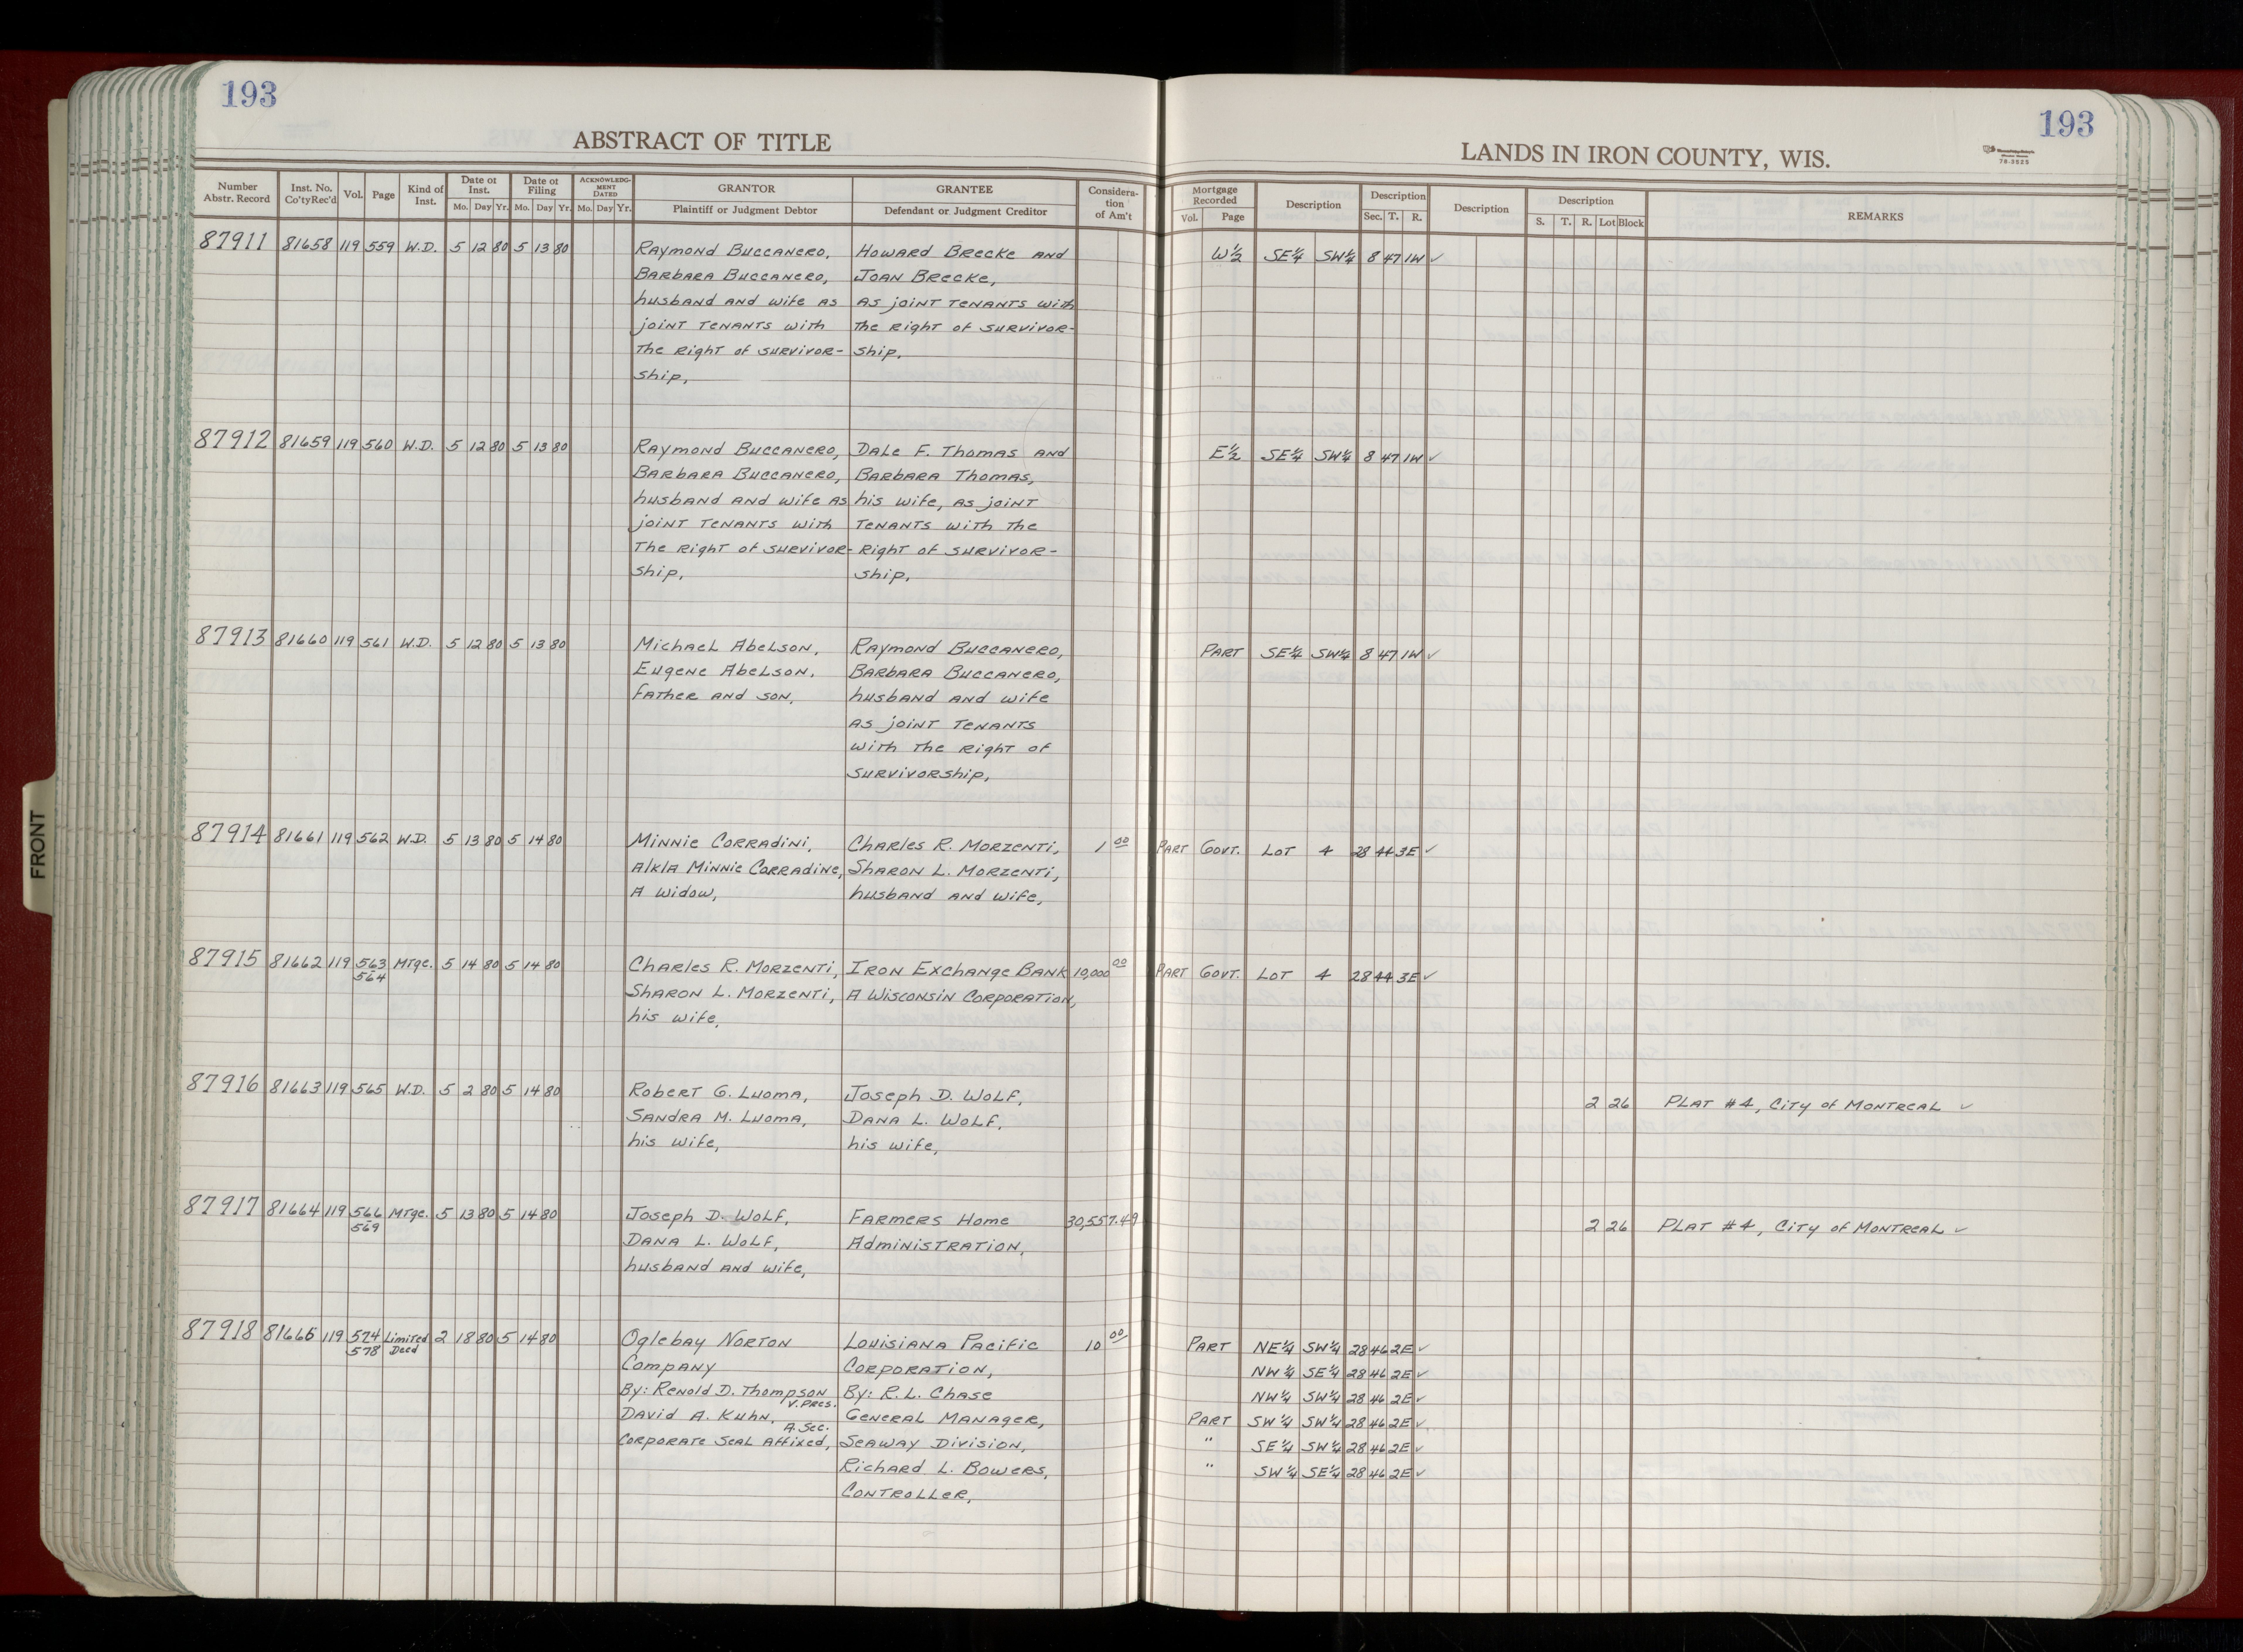 193
193
ABSTRACT OF TITLE
LANDS IN IRON COUNTY, WIS.
78-3525
Number Abstr. Record | Inst. No. Co'ty Rec'd | Vol. | Page | Kind of Inst. | Date of Inst. Mo. Day Yr. | Date of Filing Mo. Day Yr. | ACKNOWLEDGMENT DATED Mo. Day Yr. | GRANTOR Plaintiff or Judgment Debtor | GRANTEE Defendant or Judgment Creditor | Consideration of Am't | Mortgage Recorded Vol. Page | Description | Description Sec. T. R. | Description | Description S. T. R. Lot Block | REMARKS
87911 81658 119 559 W.D. 5 12 80 5 13 80 Raymond Buccanero, Howard Brecke and W½ SE¼ SW¼ 8 47 1W ✓
Barbara Buccanero, Joan Brecke,
husband and wife as as joint tenants with
joint tenants with the right of survivor-
the right of survivor- ship,
ship,
87912 81659 119 560 W.D. 5 12 80 5 13 80 Raymond Buccanero, Dale F. Thomas and E½ SE¼ SW¼ 8 47 1W ✓
Barbara Buccanero, Barbara Thomas,
husband and wife as his wife, as joint
joint tenants with tenants with the
the right of survivor- right of survivor-
ship, ship,
87913 81660 119 561 W.D. 5 12 80 5 13 80 Michael Abelson, Raymond Buccanero, Part SE¼ SW¼ 8 47 1W ✓
Eugene Abelson, Barbara Buccanero,
father and son, husband and wife
as joint tenants
with the right of
survivorship,
87914 81661 119 562 W.D. 5 13 80 5 14 80 Minnie Corradini, Charles R. Morzenti, 1 00 Part Govt. Lot 4 28 44 3E ✓
A/K/A Minnie Corradine, Sharon L. Morzenti,
a widow, husband and wife,
87915 81662 119 563 Mtge. 5 14 80 5 14 80 Charles R. Morzenti, Iron Exchange Bank 10,000 00 Part Govt. Lot 4 28 44 3E ✓
564 Sharon L. Morzenti, a Wisconsin Corporation,
his wife,
87916 81663 119 565 W.D. 5 2 80 5 14 80 Robert G. Luoma, Joseph D. Wolf, 2 26 Plat #4, City of Montreal ✓
Sandra M. Luoma, Dana L. Wolf,
his wife, his wife,
87917 81664 119 566 Mtge. 5 13 80 5 14 80 Joseph D. Wolf, Farmers Home 30,557.49 2 26 Plat #4, City of Montreal ✓
569 Dana L. Wolf, Administration,
husband and wife,
87918 81665 119 574 Limited 2 18 80 5 14 80 Oglebay Norton Louisiana Pacific 10 00 Part NE¼ SW¼ 28 46 2E ✓
578 Deed Company Corporation, NW¼ SE¼ 28 46 2E ✓
By: Renold D. Thompson V. Pres. By: R.L. Chase NW¼ SW¼ 28 46 2E ✓
David A. Kuhn, A. Sec. General Manager, Part SW¼ SW¼ 28 46 2E ✓
Corporate Seal Affixed, Seaway Division, " SE¼ SW¼ 28 46 2E ✓
Richard L. Bowers, " SW¼ SE¼ 28 46 2E ✓
Controller,
FRONT